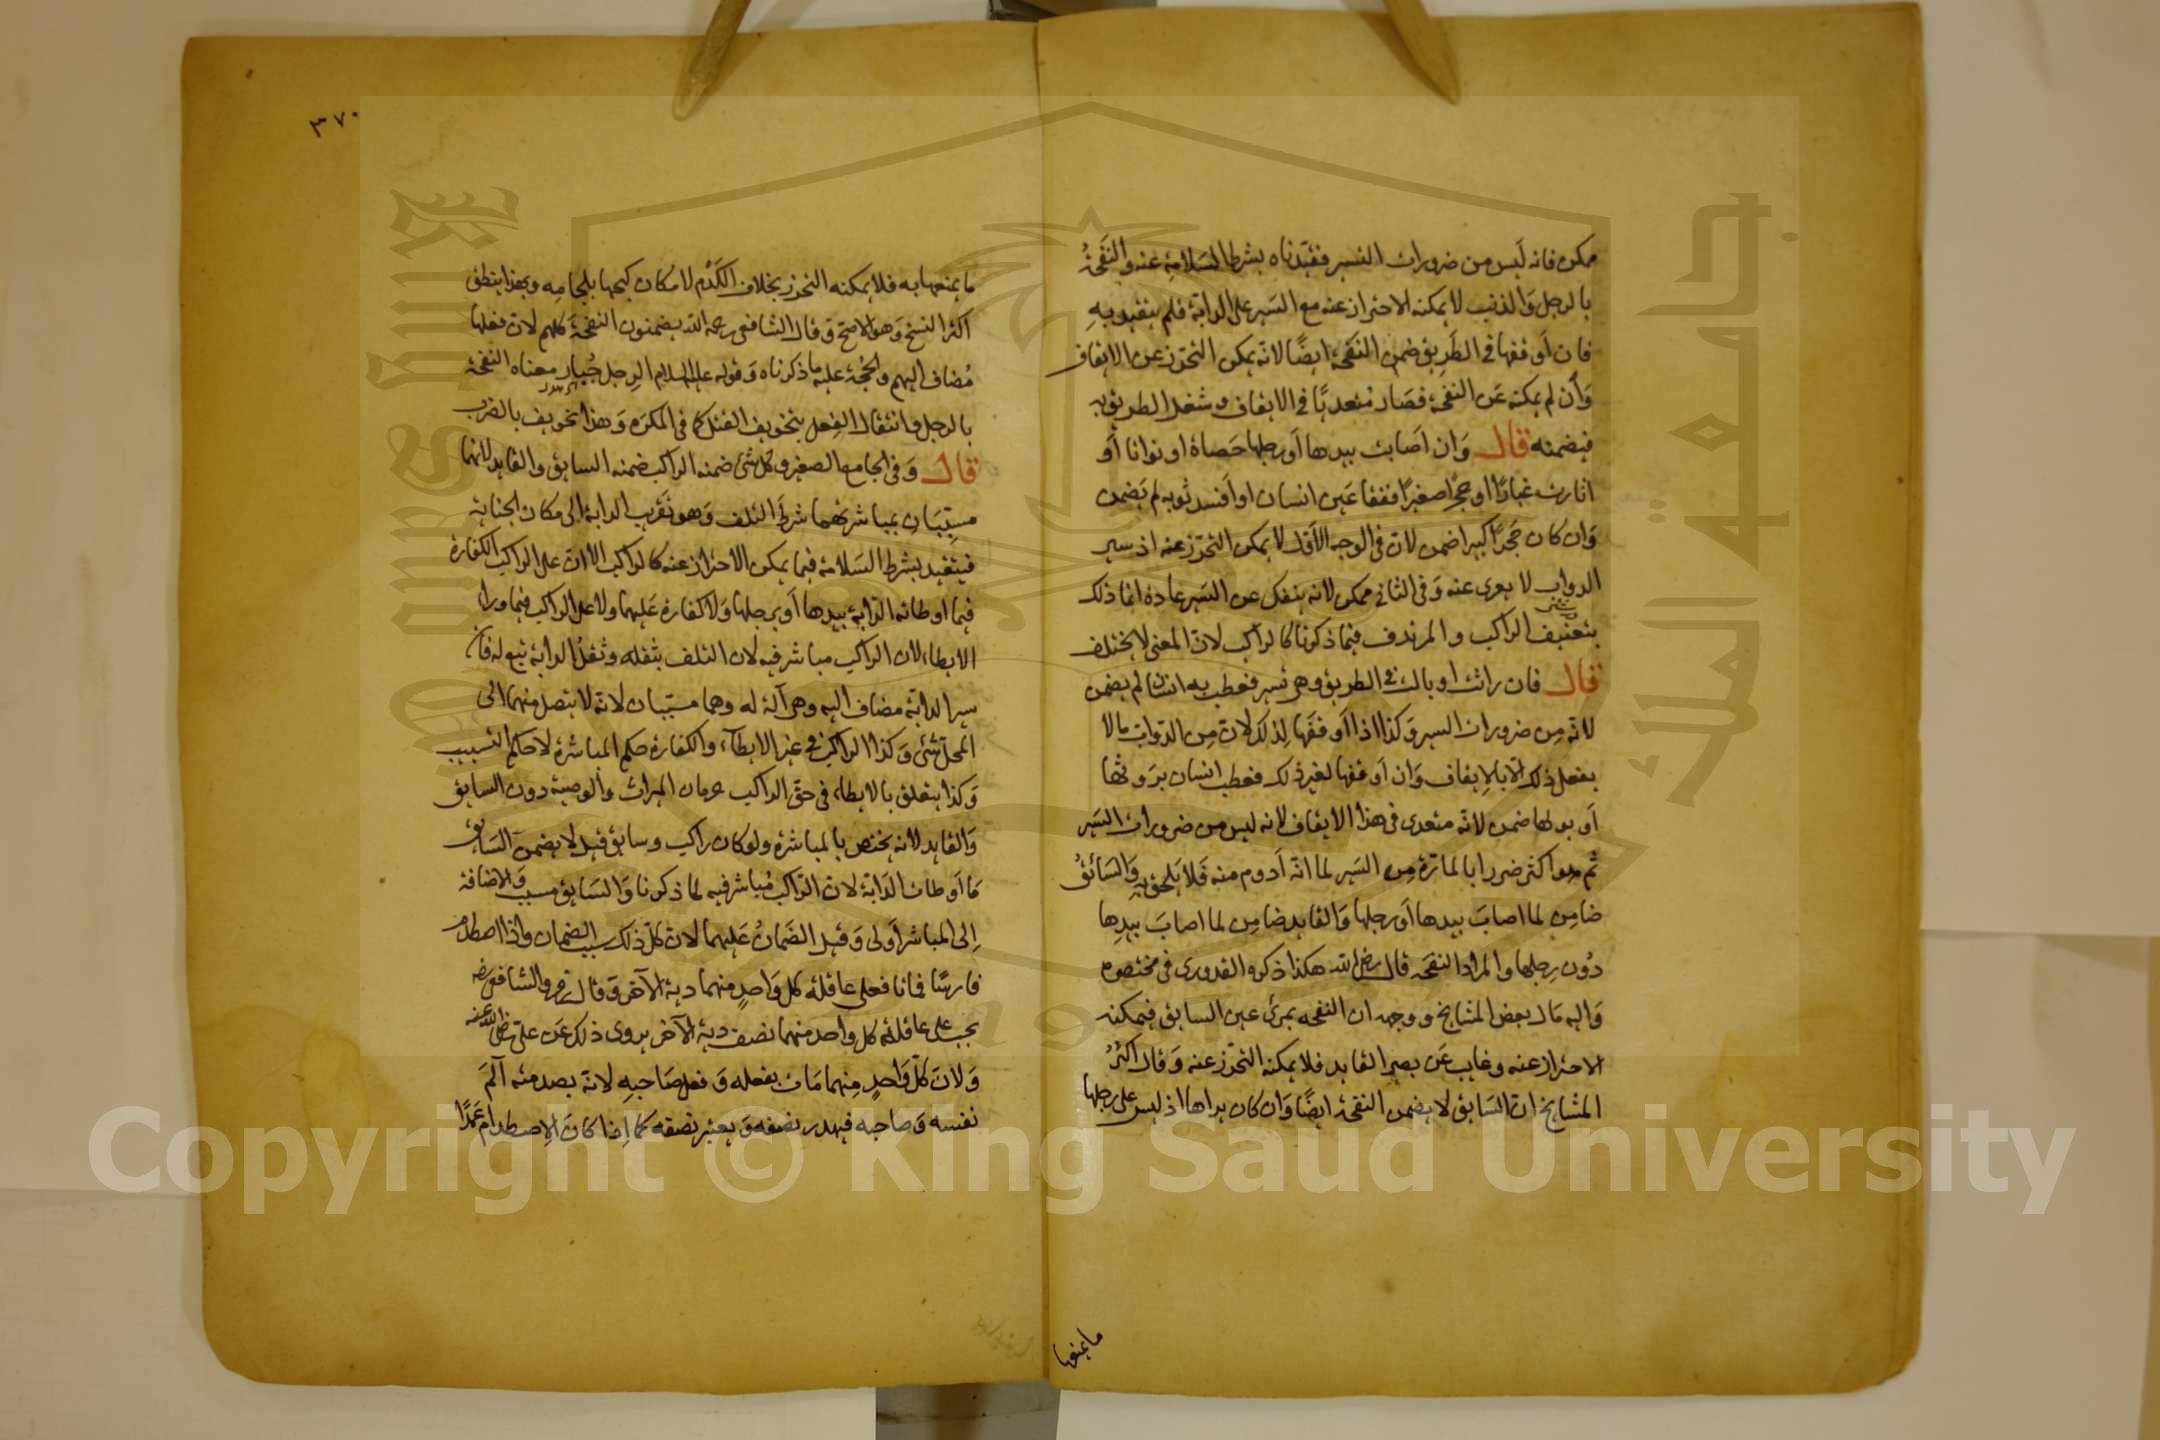 ممكن فانه ليس من ضرورات التسيير فقيدناه بشرط السلامة عنه والنفحة
بالرجل والذنب لا يمكنه الاحتراز عنه مع السير على الدابة فلم يتقيد به
فان أوقفها في الطريق ضمن النفحة ايضًا لانه يمكن التحرز عن الايقاف
وأن لم يمكنه عن النفحة فصار متعديًا في الايقاف وشغل الطريق به
فيضمنه قال وان اصابت بيدها أو رجلها حصاة او نواتا أو
اثارت غبارًا او حجرًا صغيرًا ففقأ عين انسان او أفسد ثوبه لم يضمن
وان كان حجرًا كبيرا ضمن لان في الوجه الأول لا يمكن التحرز عنه اذ سير
الدواب لا يعرى عنه وفي الثاني ممكن لانه ينفك عن السير عادة انما ذلك
بتعنيف الراكب والمرتدف فيما ذكرنا كالراكب لان المعنى لا يختلف
قال فان راثت او بالت في الطريق وهي تسير فعطب به انسان لم يضمن
لانه من ضرورات السير وكذا اذا أوقفها لذلك لان من الدواب ما لا
يفعل ذلك الا بالإيقاف وان أوقفها لغير ذلك فعطب انسان بروثها
أو بولها ضمن لانه متعدى في هذا الايقاف لانه ليس من ضرورات السير
ثم هو اكثر ضررا بالمارة من السير لما انه أدوم منه فلا يلحق به والسائق
ضامن لما اصاب بيدها أو رجلها والقايد ضامن لما اصاب بيدها
دون رجلها والمراد النفحة قال رضي الله هكذا ذكره القدوري في مختصره
واليه مال بعض المشايخ ووجهه ان النفحة بمرئ عين السايق فيمكنه
الاحتراز عنه وغايب عن بصر القايد فلا يمكنه التحرز عنه وقال اكثر
المشايخ ان السايق لا يضمن النفحة ايضًا وان كان يراها اذ ليس على رجلها
ما يمنعها
٣٧٠
ما يمنعها به فلا يمكنه التحرز بخلاف الكدم لامكان كبحها بلجامه وبهذا ينطق
اكثر النسخ وهو الاصح وقال الشافعي رحمه الله يضمنون النفحة كلهم لان فعلها
مضاف اليهم والحجة عليه ما ذكرناه وقوله عليه السلام الرجل جبار معناه النفحة
بالرجل وانتقال الفعل بتخويف القتل كما في المكره وهذا تخويف بالضرب
قال وفي الجامع الصغير وكل شئ ضمنه الراكب ضمنه السايق والقايد لانهما
مسببان بمباشرتهما شرط التلف وهو تقريب الدابة الى مكان الجناية
فيتقيد بشرط السلامة فيما يمكن الاحتراز عنه كالراكب الا ان على الراكب الكفارة
فيما اوطأته الدابة بيدها أو برجلها ولا كفارة عليهما ولا على الراكب فيما وراء
الايطاء لان الراكب مباشر فيه لان التلف بثقله وثقل الدابة تبع له فان
سير الدابة مضاف اليه وهي آلة له وهما مسببان لانه لا يتصل منهما الى
المحل شئ وكذا الراكب في غير الايطاء والكفارة حكم المباشرة لا حكم التسبيب
وكذا يتعلق بالايطاء في حق الراكب حرمان الميراث والوصية دون السايق
والقايد لانه يختص بالمباشرة ولو كان راكب وسايق قيل لا يضمن السايق
ما أوطأت الدابة لان الراكب مباشر فيه لما ذكرنا والسايق مسبب والاضافة
إلى المباشر أولى وقيل الضمان عليهما لان كل ذلك سبب الضمان واذا اصطدم
فارسًا فماتا فعلى عاقلة كل واحد منهما دية الآخر وقال زفر والشافعي رضه
يجب على عاقلة كل واحد منهما نصف دية الآخر يروى ذلك عن علي رضي الله عنه
ولان كل واحد منهما مات بفعله وفعل صاحبه لانه بصدمته آلم
نفسه وصاحبه فيهدر نصفه ويعتبر نصفه كما إذا كان الاصطدام عمدًا
Copyright © King Saud University
جامعة الملك سعود
King Saud University
1957